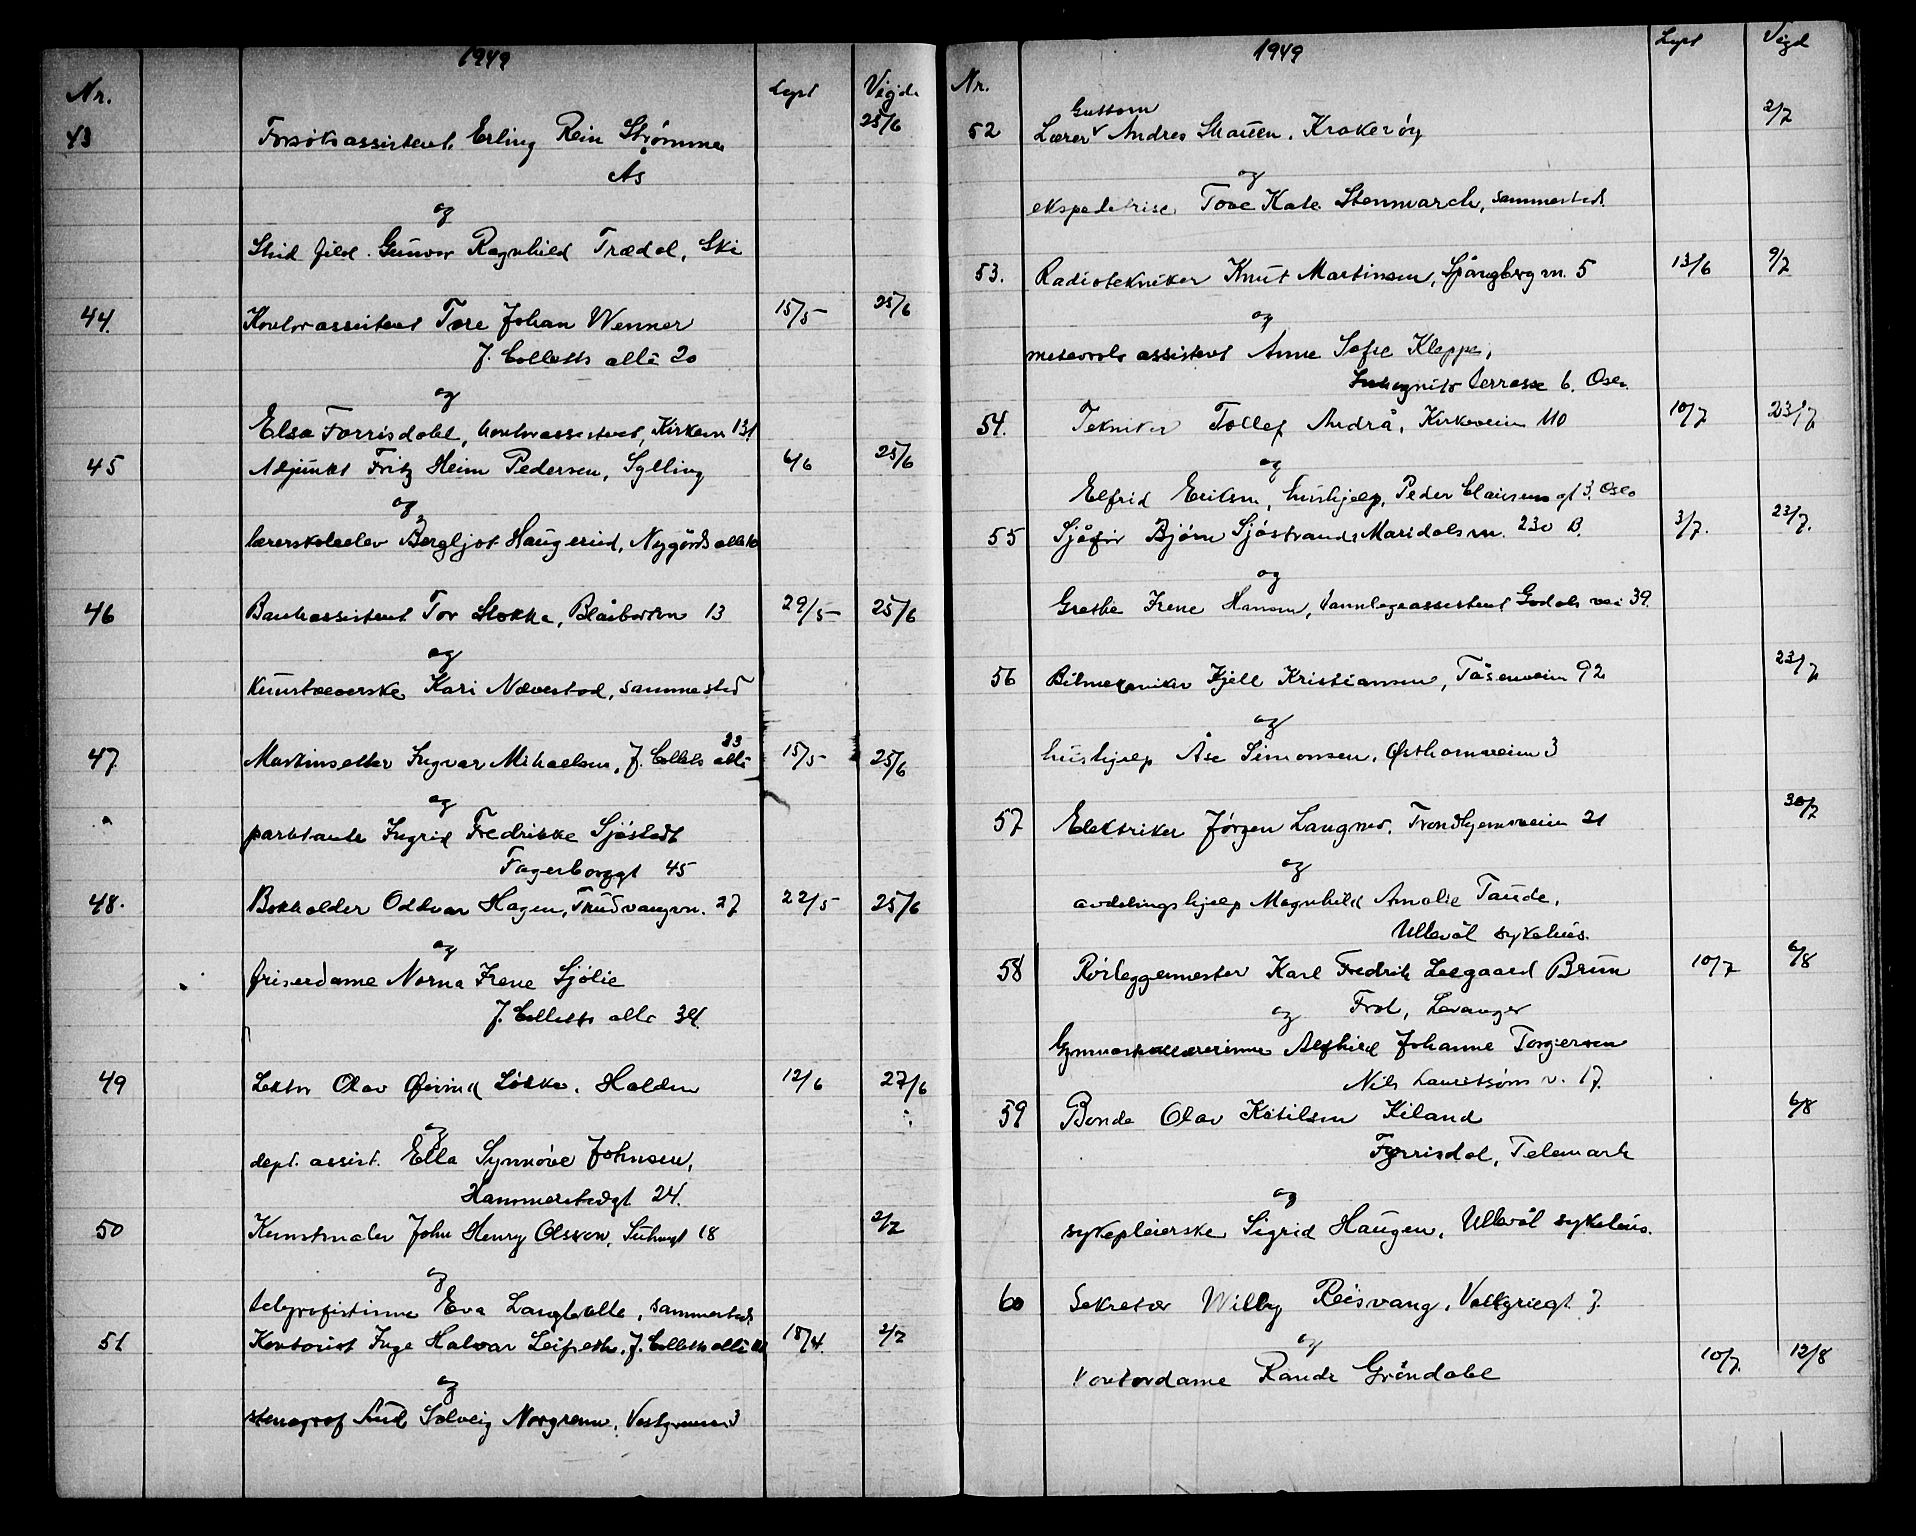 1949
Nr. Lyst Vigde
43 Forsøksassistent Erling Rein Strømme 25/6
Ås
og
Stud fil. Gunvor Ragnhild Trædal, Ski
44 Kontorassistent Tore Johan Wenner 15/5 25/6
J. Colletts alle 20
og
Elsa Forrisdahl, kontorassistent, Kirkevn 131
45 Adjunkt Fritz Heim Pedersen, Sylling 6/6 25/6
og
lærerskoleelev Bergljot Haugerud, Nygårds alle
46 Bankassistent Tor Stokke, Blåbærvn 13 29/5 25/6
og
kunstvæverske Kari Nævestad, sammested
23
47 Maskinsetter Ingvar Mikaelsen, J. Colletts alle 15/5 25/6
og
parktante Ingrid Fredrikke Sjøstedt
Fagerborggt 45
48. Bokholder Oddvar Hagen, Trudvangvn. 27 22/5 25/6
og
friserdame Norna Irene Sjølie
J. Colletts alle 34.
49 Lektor Olav Øivind Løkke, Halden 12/6 27/6
og
dept. assist. Ella Synnøve Johnsen,
Hammerstadgt 24.
50 Kunstmaler John Henry Olsson, Suhmsgt 18 2/7
og
telegrafistinne Eva Langballe, sammesteds
51 Kontorist Inge Halvar Leifseth, J. Colletts alle 18/4. 2/7
og
stenograf Aud Solveig Norgrenn, 3
1949
Nr. Lyst Vigd
Guttorm
52 Lærer v Andres Skauen, Krokerøy 2/7
og
ekspeditrise Tove Kate Stenmarck, sammesteds.
53. Radiotekniker Knut Martinsen, Spångbergvn. 5 13/6 9/7
og
meteorolo assistent Anne Sofie Kleppe,
Inkognito terrasse 6, Oslo
54. Tekniker Tollef Andrå, Kirkeveien 110 10/7 23/7
og
Elfrid Eriksen, hushjelp, Peder Clausens gt 3, Oslo
55 Sjåfør Bjørn Sjøstrand, Maridalsvn. 230 B. 3/7. 23/7.
og
Grethe Irene Hansen, tannlegeassistent Godals vei 39.
56 Bilmekaniker Kjell Kristiansen, Tåsenveien 92 23/7
og
hushjelp Åse Simonsen, Østhornveien 3
57 Elektriker Jørgen Langnes, Trondhjemsveien 21 30/7
og
avdelingshjelp Magnhild Amalie Taude,
Ullevål sykehus.
58 Rørleggermester Karl Fredrik Leegaard Brun 10/7 6/8
og Frol, Levanger
Gymnastikklærerinne Alfhild Johanne Torgersen
Nils Lauritsøns v. 17.
59 Bonde Olav Ketilsen Kiland 6/8
Fyrrisdal, Telemark
og
sykepleierske Sigrid Haugen, Ullevål sykehus.
60 Sekretær Willy Reisvang, Valkyriegt 7.
og
kontordame Randi Grøndahl 10/7. 12/8